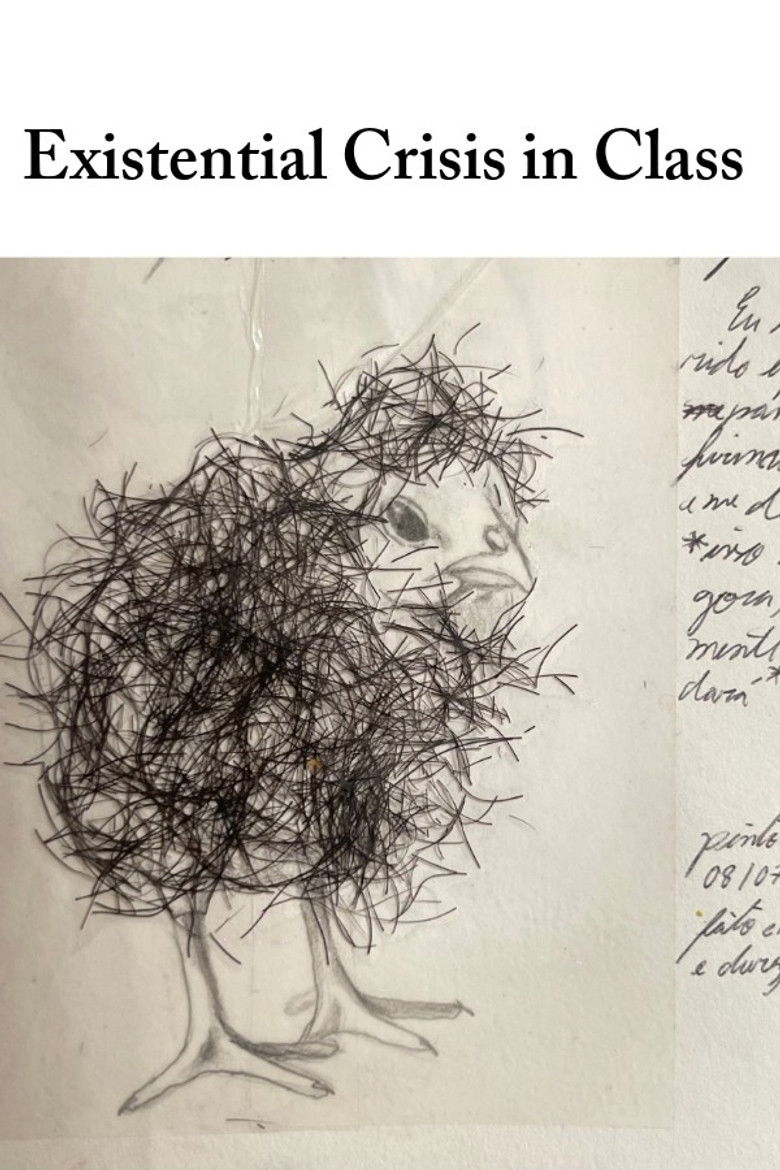 Existential Crisis in Class
Eu
rido e
pa
e me d
*isso
gora
mente
dará"*
pinto
08/07
feito e
e dure